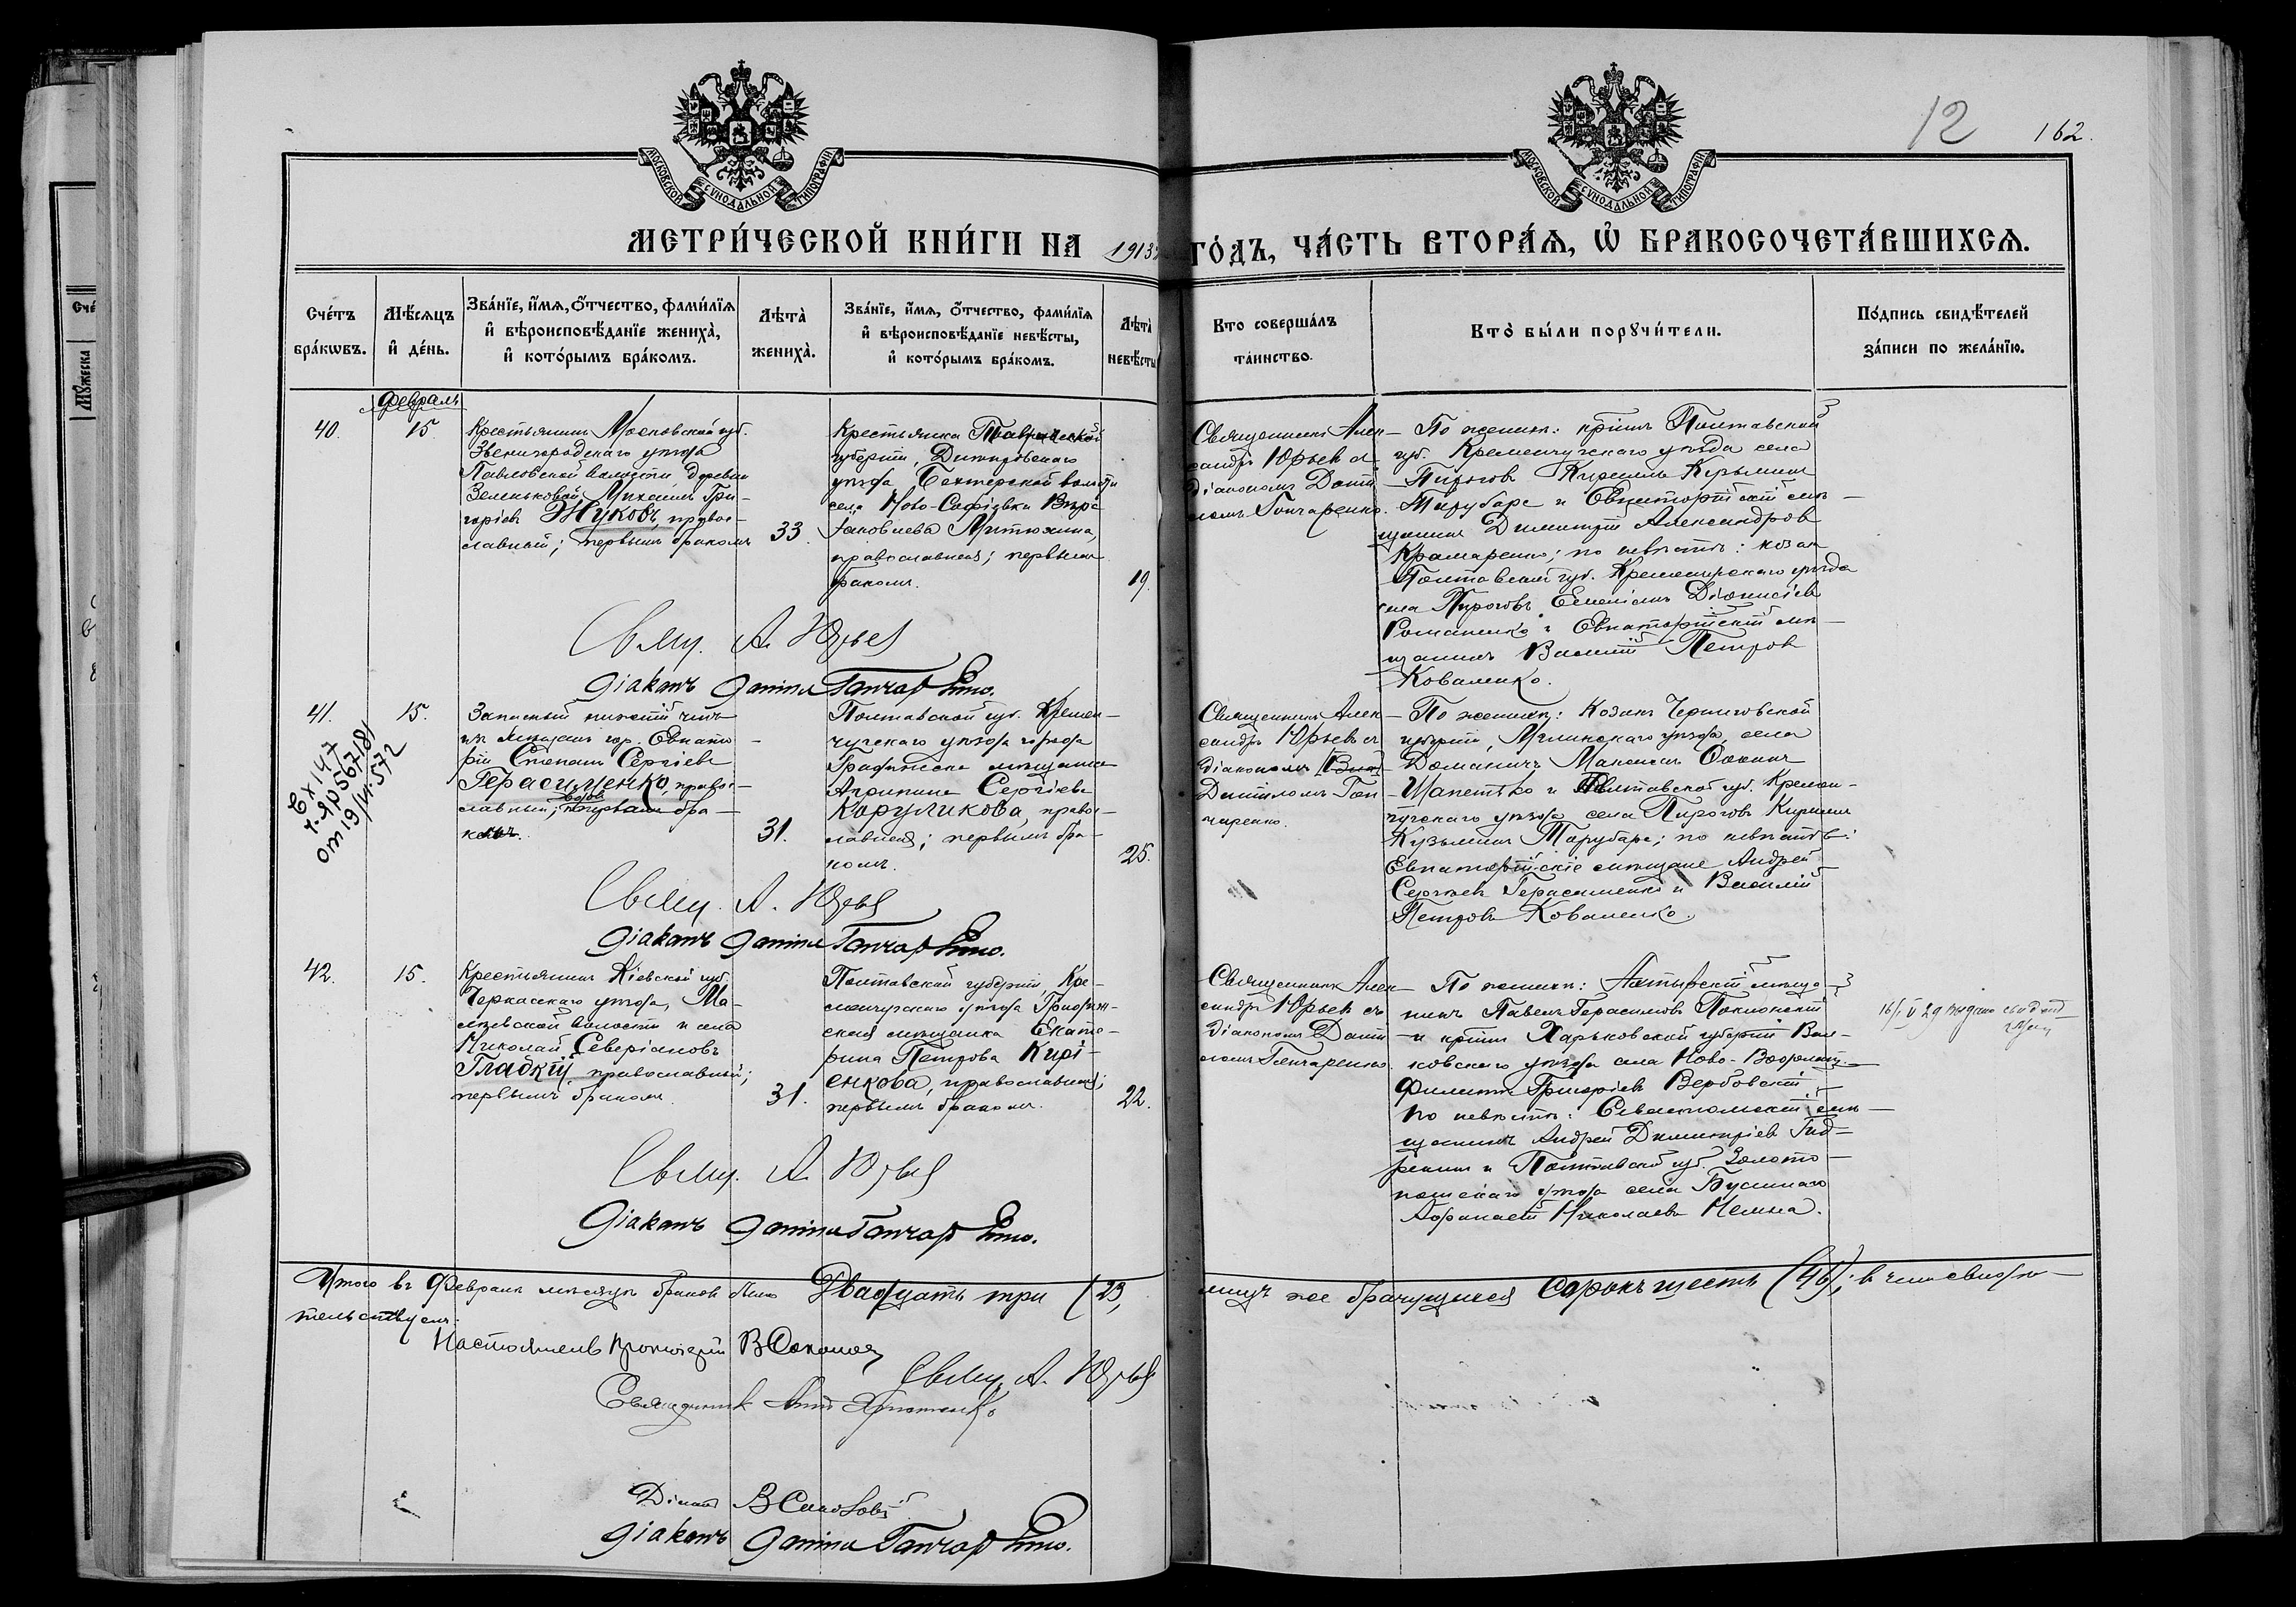 12
162.
МОСКОВСКОЙ СѴНОДАЛЬНОЙ ТИПОГРАФІИ
МОСКОВСКОЙ СѴНОДАЛЬНОЙ ТИПОГРАФІИ
МЕТРИ́ЧЕСКОЙ КНИ́ГИ НА 1913
ГО́ДЪ, ЧА́СТЬ ВТОРА́Я, Ѡ БРАКОСОЧЕТА́ВШИХСЯ.
Сче́тъ
бра́кѡвъ.
Мѣ́сяцъ
и҆ де́нь.
Зва́нїе, и҆́мя, ѻ҆́тчество, фами́лїя
и҆ вѣроисповѣ́данїе жениха̀,
и҆ кото́рымъ бра́комъ.
Лѣта̀
жениха̀.
Зва́нїе, и҆́мя, ѻ҆́тчество, фами́лїя
и҆ вѣроисповѣ́данїе невѣ́сты,
и҆ кото́рымъ бра́комъ.
Лѣта̀
невѣ́сты
Кто соверша́лъ
та́инство.
Кто̀ бы́ли порꙋчи́тели.
По́дпись свидѣ́телей
за́писи по жела́нїю.
Февраль
40.
15
Крестьянинъ Московской губ.
Звенигородскаго уѣзда
Павловской волости, деревни
Зеленьковой, Михаилъ Гри-
горіевъ Жуковъ, право-
славный; первымъ бракомъ
33.
Крестьянка Таврической
губерніи, Днѣпровскаго
уѣзда Бехтерской волости
села Ново-Софіевки Вѣра
Іаковлева Митюхина,
православная; первымъ
бракомъ.
19.
Священникъ Алек-
сандръ Юрьевъ съ
діакономъ Дани-
ломъ Гончаренко.
По женихѣ: крестьян. Полтавской
губ. Кременчугскаго уѣзда села
Пироговъ Кириллъ Кузьминъ
Тарубара и Евпаторійскій мѣ-
щанинъ Димитрій Александровъ
Крамаренко; по невѣстѣ: козакъ
Полтавской губ. Кременчугскаго уѣзда
села Пироговъ Емеліанъ Діонисіевъ
Романенко и Евпаторійскій мѣ-
щанинъ Василій Петровъ
Коваленко.
Свящ. А. Юрьевъ
Діаконъ Данiилъ Гончаренко.
41.
15.
Запасный нижній чинъ
изъ мѣщанъ гор. Евпато-
ріи Стефанъ Сергіевъ
Герасименко, право-
славный; первымъ бра-
комъ.
31.
Полтавской губ. Кремен-
чугскаго уѣзда города
Градижска мѣщанка
Агрипина Сергіева
Каруликова, право-
славная; первымъ бра-
комъ.
25.
Священникъ Алек-
сандръ Юрьевъ съ
діакономъ
Даніиломъ Гон-
чаренко.
По женихѣ: Козакъ Черниговской
губерніи, Мглинскаго уѣзда, села
Доманичъ Максимъ
Шапетько и Полтавской губ. Кремен-
чугскаго уѣзда села Пироговъ Кириллъ
Кузьминъ Тарубара; по невѣстѣ:
Евпаторійскіе мѣщане Андрей
Сергѣевъ Герасименко и Василій
Петровъ Коваленко.
Свящ. А. Юрьевъ
Діаконъ Данiилъ Гончаренко.
42.
15.
Крестьянинъ Кіевской губ.
Черкасскаго уѣзда, Ма-
ліевской волости и села
Николай Северіановъ
Гладкій, православный;
первымъ бракомъ.
31.
Полтавской губерніи, Кре-
менчугскаго уѣзда Градиж-
ская мѣщанка Екате-
рина Петрова Кирі-
енкова, православная;
первымъ бракомъ.
22.
Священникъ Алек-
сандръ Юрьевъ съ
діакономъ Дани-
ломъ Гончаренко.
По женихѣ: Ахтырскій мѣща-
нинъ Павелъ Герасимовъ
и крестьян. Харьковской губерніи Вал-
ковскаго уѣзда села Ново-
Филиппъ Григоріевъ Вербовскій
по невѣстѣ: Севастопольскій мѣ-
щанинъ Андрей Димитріевъ
и Полтавской губ. Золото-
ношскаго уѣзда села
Афанасій Николаевъ
Свящ. А. Юрьевъ
Діаконъ Данiилъ Гончаренко.
Итого въ Февралѣ мѣсяцѣ браковъ было Двадцать три (23,
лицъ же брачущихся сорокъ шесть (46); въ чемъ свидѣ-
тельствуемъ:
Настоятель Протоіерей В Соколовъ
Свящ. А. Юрьевъ
Священникъ
Діаконъ
Діаконъ Данiилъ Гончаренко.